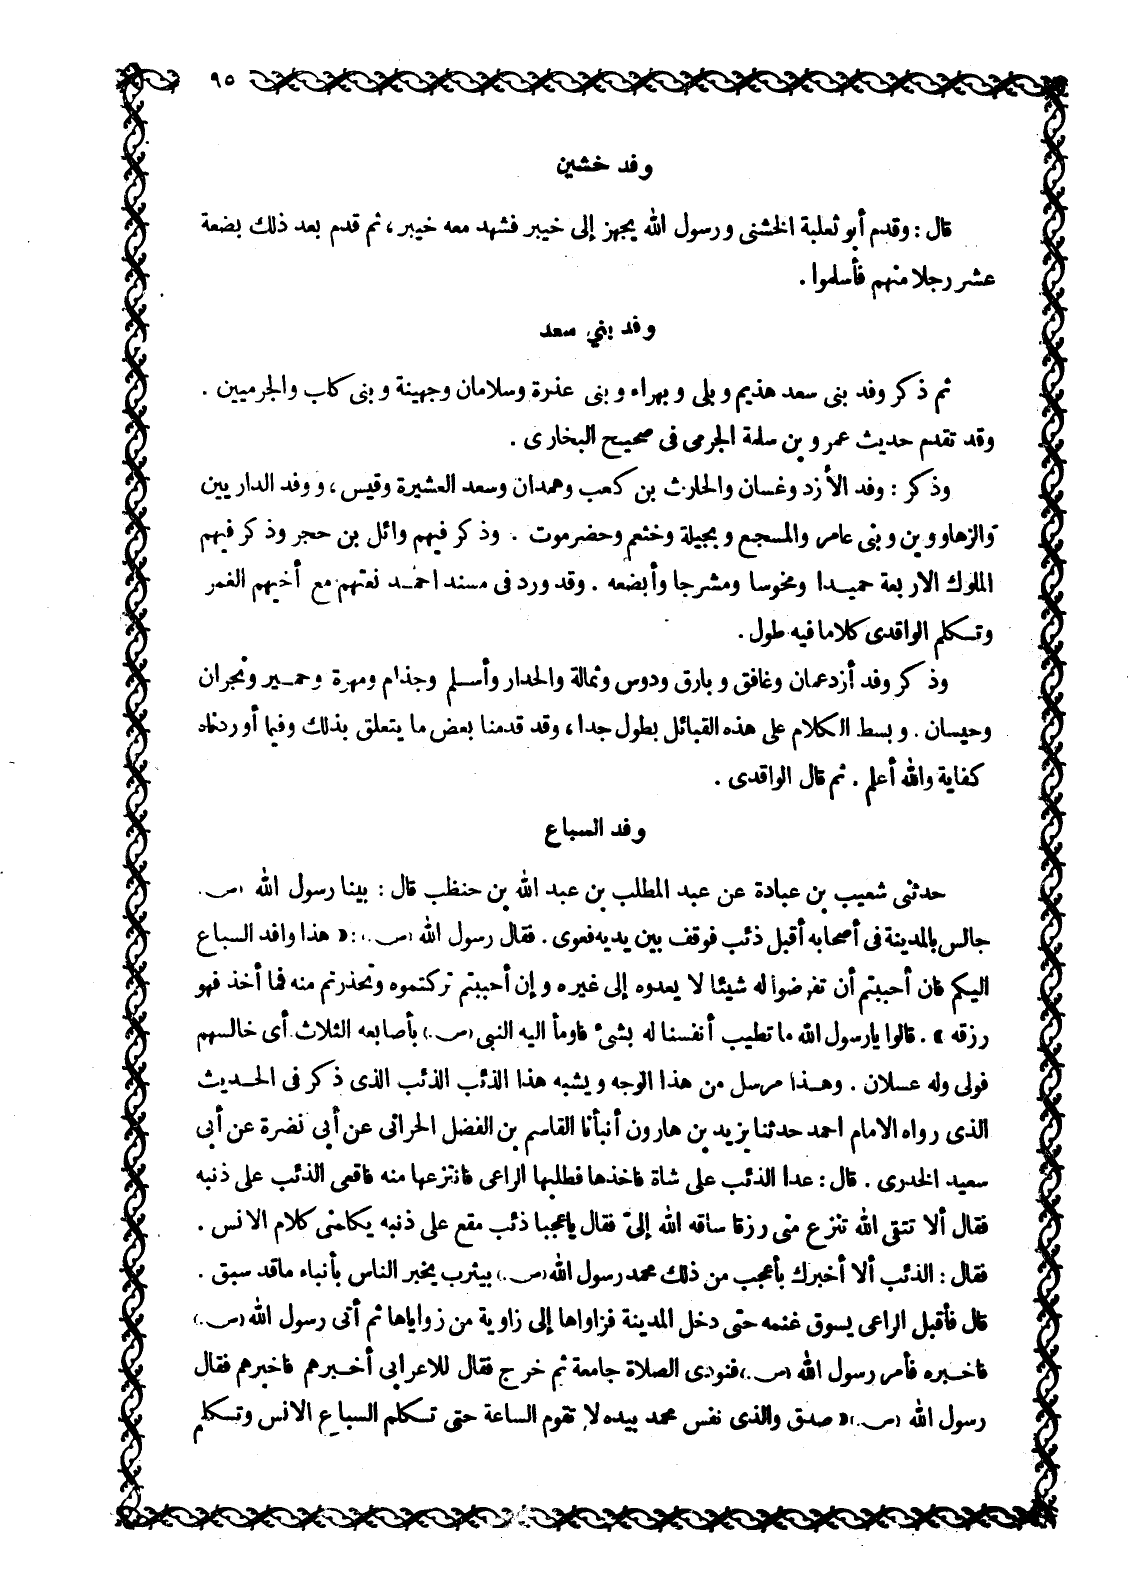 ٩٥
وفد خشين
قال : وقدم أبو ثعلبة الخشنى ورسول الله يجهز إلى خيبر فشهد معه خيبر ، ثم قدم بعد ذلك بضعة
عشر رجلا منهم فأسلموا .
وفد بني سعد
ثم ذكر وفد بنى سعد هذيم وبلى وبهراء وبنى عذرة وسلامان وجهينة وبنى كلب والجرميين .
وقد تقدم حديث عمرو بن سلمة الجرمى فى صحيح البخارى .
وذكر : وفد الأزد وغسان والحارث بن كعب وهمدان وسعد العشيرة وقيس ، ووفد الداريين
والزهاوويين وبنى عامر والمسجع وبجيلة وخثعم وحضرموت . وذكر فيهم وائل بن حجر وذكر فيهم
الملوك الاربعة حميدا ومخوسا ومشرجا وأبضعه . وقد ورد فى مسند احمد نعتهم مع أخيهم الغمر
وتكلم الواقدى كلاما فيه طول .
وذكر وفد أزدعمان وغافق وبارق ودوس وثمالة والحدار وأسلم وجذام ومهرة وحمير ونجران
وحيسان . وبسط الكلام على هذه القبائل بطول جدا ، وقد قدمنا بعض ما يتعلق بذلك وفيما أوردناه
كفاية والله أعلم . ثم قال الواقدى .
وفد السباع
حدثنى شعيب بن عبادة عن عبد المطلب بن عبد الله بن حنظب قال : بينا رسول الله (ص.)
جالس بالمدينة فى أصحابه أقبل ذئب فوقف بين يديه فعوى . فقال رسول الله (ص.) : « هذا وافد السباع
اليكم فان أحببتم أن تفرضوا له شيئا لا يعدوه إلى غيره وإن أحببتم تركتموه وتحذرتم منه فما أخذ فهو
رزقه » . قالوا يارسول الله ما تطيب أنفسنا له بشئ فاومأ اليه النبى (ص.) بأصابعه الثلاث أى خالسهم
فولى وله عسلان . وهذا مرسل من هذا الوجه ويشبه هذا الذئب الذئب الذى ذكر فى الحديث
الذى رواه الامام احمد حدثنا يزيد بن هارون أنبأنا القاسم بن الفضل الحرانى عن أبى نضرة عن أبى
سعيد الخدرى . قال : عدا الذئب على شاة فاخذها فطلبها الراعى فانتزعها منه فاقعى الذئب على ذنبه
فقال ألا تتقى الله تنزع منى رزقا ساقه الله إلىّ فقال ياعجبا ذئب مقع على ذنبه يكلمنى كلام الانس .
فقال : الذئب ألا أخبرك بأعجب من ذلك محمد رسول الله (ص.) بيثرب يخبر الناس بأنباء ماقد سبق .
قال فأقبل الراعى يسوق غنمه حتى دخل المدينة فزاواها إلى زاوية من زواياها ثم أتى رسول الله (ص.)
فاخبره فأمر رسول الله (ص.) فنودى الصلاة جامعة ثم خرج فقال للاعرابى أخبرهم فاخبرهم فقال
رسول الله (ص.) « صدق والذى نفس محمد بيده لا تقوم الساعة حتى تكلم السباع الانس وتكلم